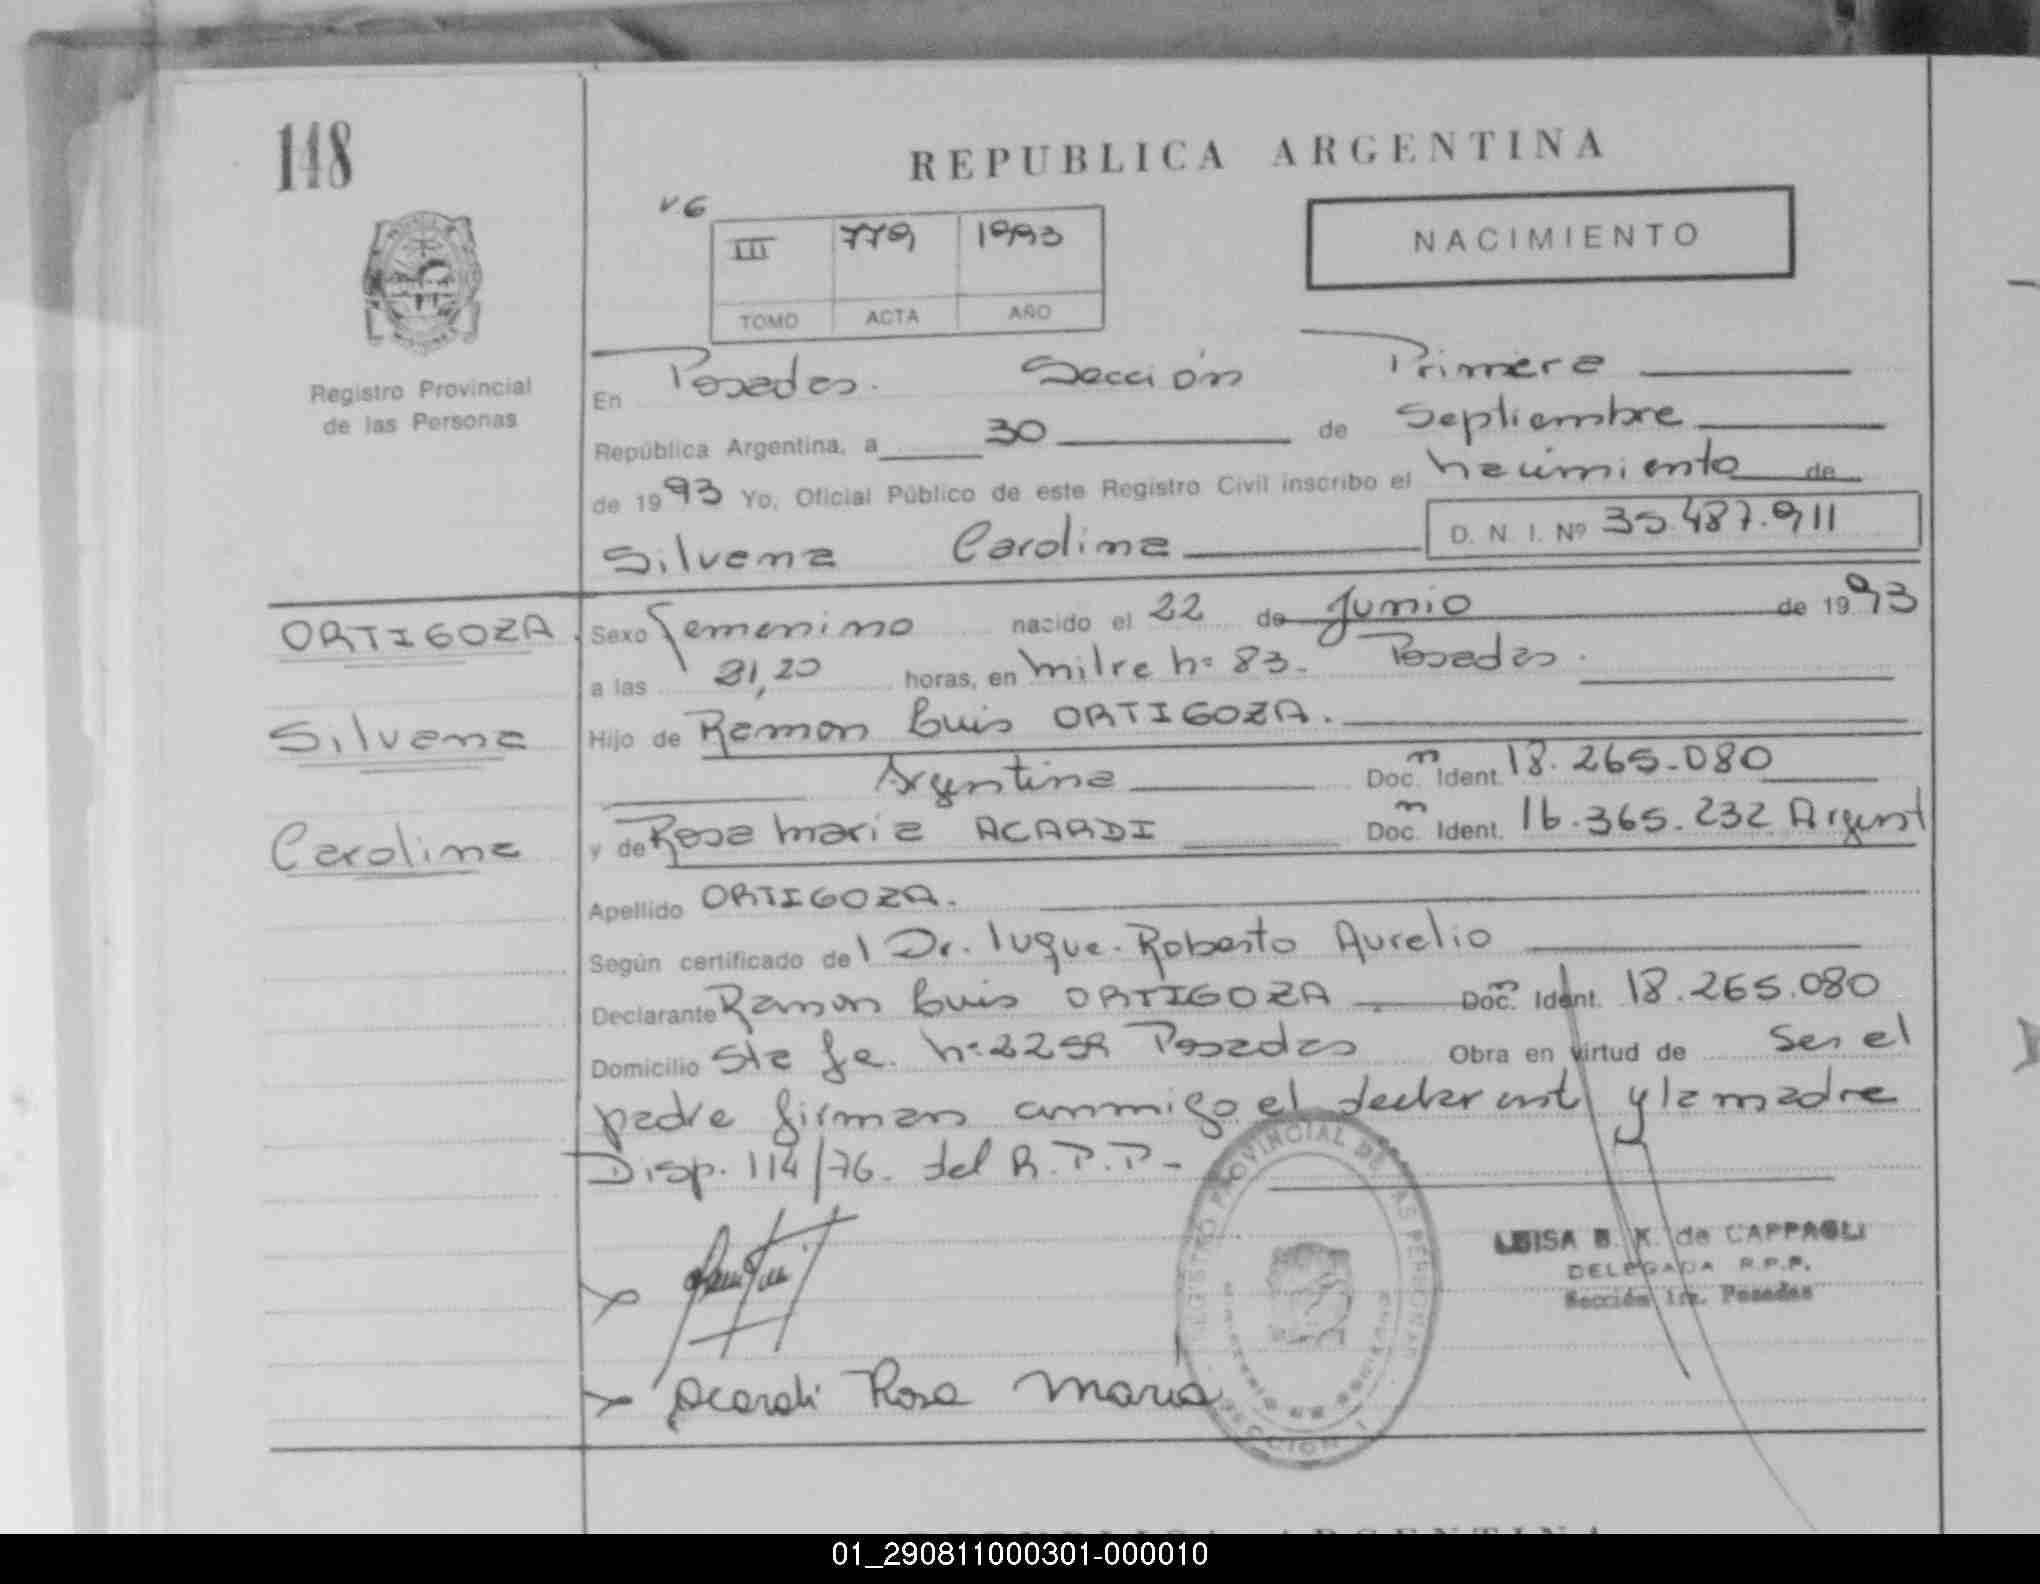 148
REPUBLICA ARGENTINA
V.6
III 779 1993
TOMO ACTA AÑO
NACIMIENTO
Registro Provincial
de las Personas
En Posadas. Sección Primera
República Argentina, a 30 de Septiembre
de 1993 Yo, Oficial Público de este Registro Civil inscribo el nacimiento de
Silvana Carolina D. N. I. Nº 35.487.911
ORTIGOZA
Silvana
Carolina
Sexo femenino nacido el 22 de Junio de 1993
a las 21,20 horas, en Mitre nº 83. Posadas.
Hijo de Ramon Luis ORTIGOZA.
Argentina Doc. n Ident. 18.265.080
y de Rosa Maria ACARDI Doc. n Ident. 16.365.232 Argent
Apellido ORTIGOZA.
Según certificado del Dr. luque. Roberto Aurelio
Declarante Ramon Luis ORTIGOZA Doc. n Ident. 18.265.080
Domicilio Sta fe. nº Posadas Obra en virtud de Ser el
padre firman conmigo el declarante y la madre
Disp. 114/76. del R.P.P-
LUISA B. K. de CAPPAGLI
DELEGADA R.P.P.
Sección 1ra. Posadas
REGISTRO PROVINCIAL DE LAS PERSONAS
SECCION 1
Acardi Rosa Maria
REPUBLICA ARGENTINA
01_290811000301-000010